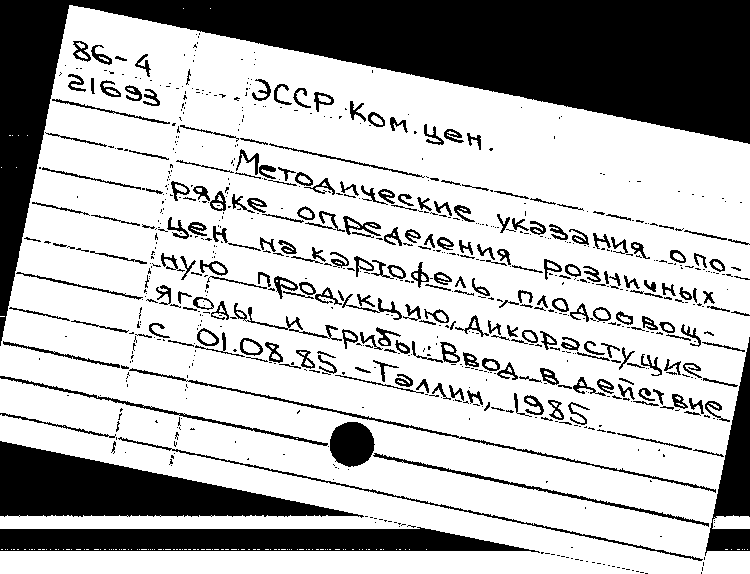 86-4
21693
ЭССР. Ком. цен.
Методические указания о по-
рядке определения розничных
цен на картофель, плодоовощ-
ную продукцию, дикорастущие
ягоды и грибы. Ввод. в действие
с 01.08.85. - Таллин, 1985.